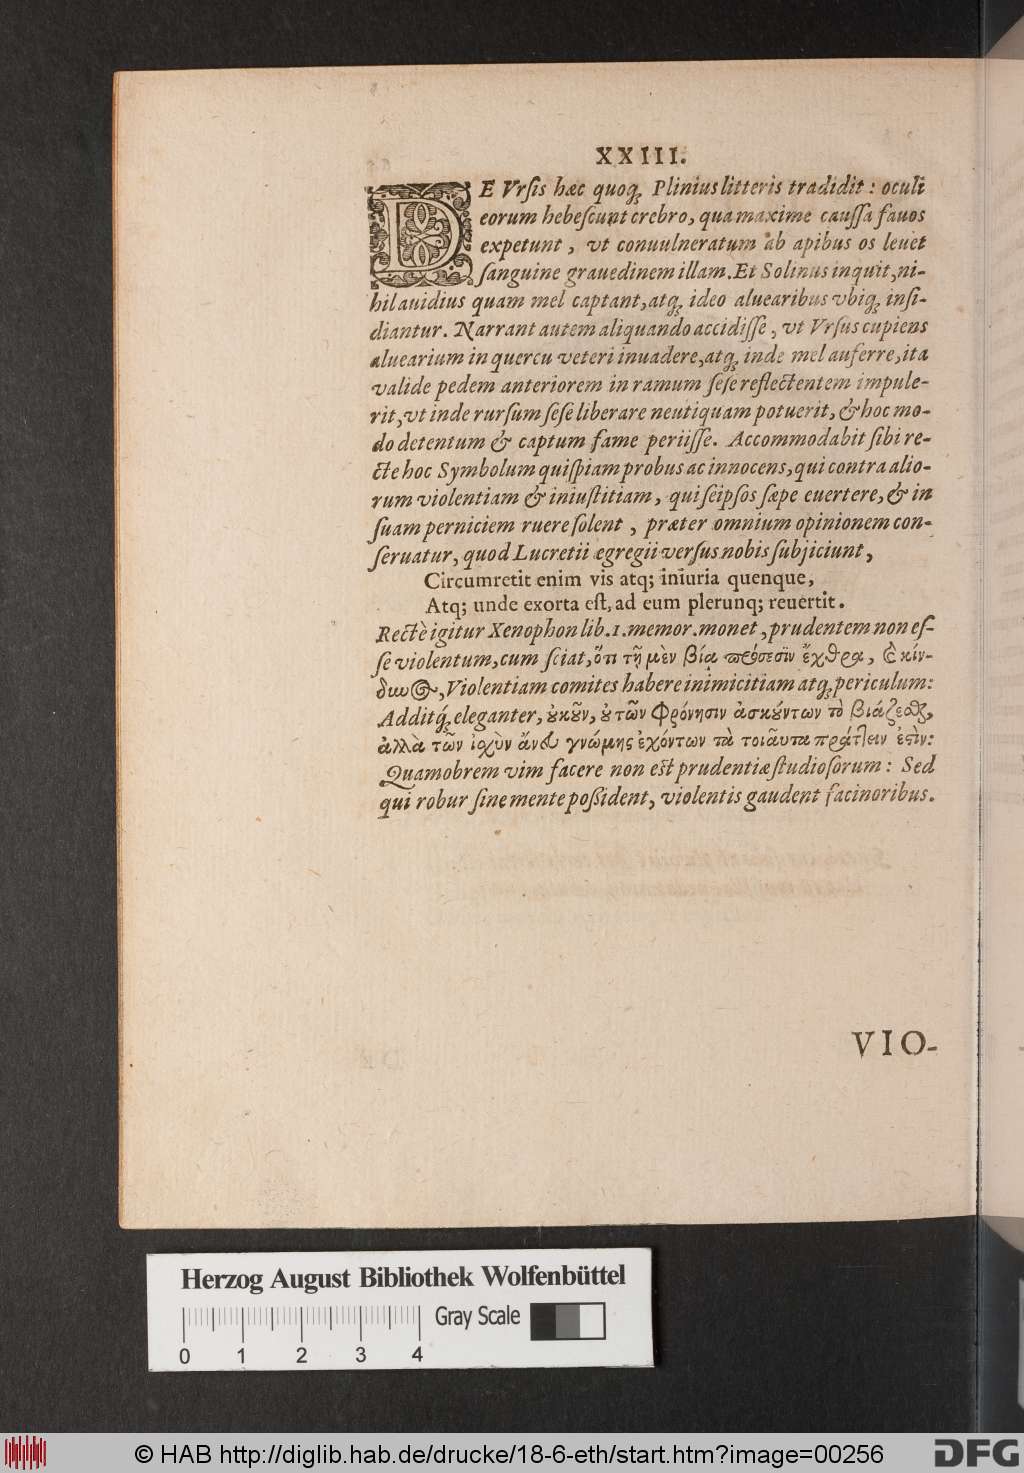 XXIII.
DE Vrſis hæc quoq; Plinius litteris tradidit: oculi
eorum hebeſcunt crebro, qua maxime cauſſa fauos
expetunt, vt conuulneratum ab apibus os leuet
ſanguine grauedinem illam. Et Solinus inquit, ni-
hil auidius quam mel captant, atq; ideo aluearibus vbiq; inſi-
diantur. Narrant autem aliquando accidiſſe, vt Vrſus cupiens
aluearium in quercu veteri inuadere, atq; inde mel auferre, ita
valide pedem anteriorem in ramum ſeſe reflectentem impule-
rit, vt inde rurſum ſeſe liberare neutiquam potuerit, & hoc mo-
do detentum & captum fame periiſſe. Accommodabit ſibi re-
cte hoc Symbolum quiſpiam probus ac innocens, qui contra alio-
rum violentiam & iniuſtitiam, qui ſeipſos ſæpe euertere, & in
ſuam perniciem ruere ſolent, præter omnium opinionem con-
ſeruatur, quod Lucretii egregii verſus nobis ſubjiciunt,
Circumretit enim vis atq; iniuria quenque,
Atq; unde exorta eſt, ad eum plerunq; reuertit.
Rectè igitur Xenophon lib. 1. memor. monet, prudentem non eſ-
ſe violentum, cum ſciat, ὅτι τῇ μὲν βίᾳ πρόσεισιν ἔχθρα, ϗ κίν-
δυνος, Violentiam comites habere inimicitiam atq; periculum:
Additq́; eleganter, ȣ̓κȣ̃ν, ȣ̓ τῶν φρόνησιν ἀσκȣ́ντων τὸ βιάζεσθαι,
ἀλλὰ τῶν ἰσχὺν ἄνευ γνώμης ἐχόντων τὰ τοιαῦτα πράττειν ἐστὶν:
Quamobrem vim facere non eſt prudentiæ ſtudioſorum: Sed
qui robur ſine mente poßident, violentis gaudent facinoribus.
VIO-
Herzog August Bibliothek Wolfenbüttel
Gray Scale
0 1 2 3 4
© HAB http://diglib.hab.de/drucke/18-6-eth/start.htm?image=00256
DFG